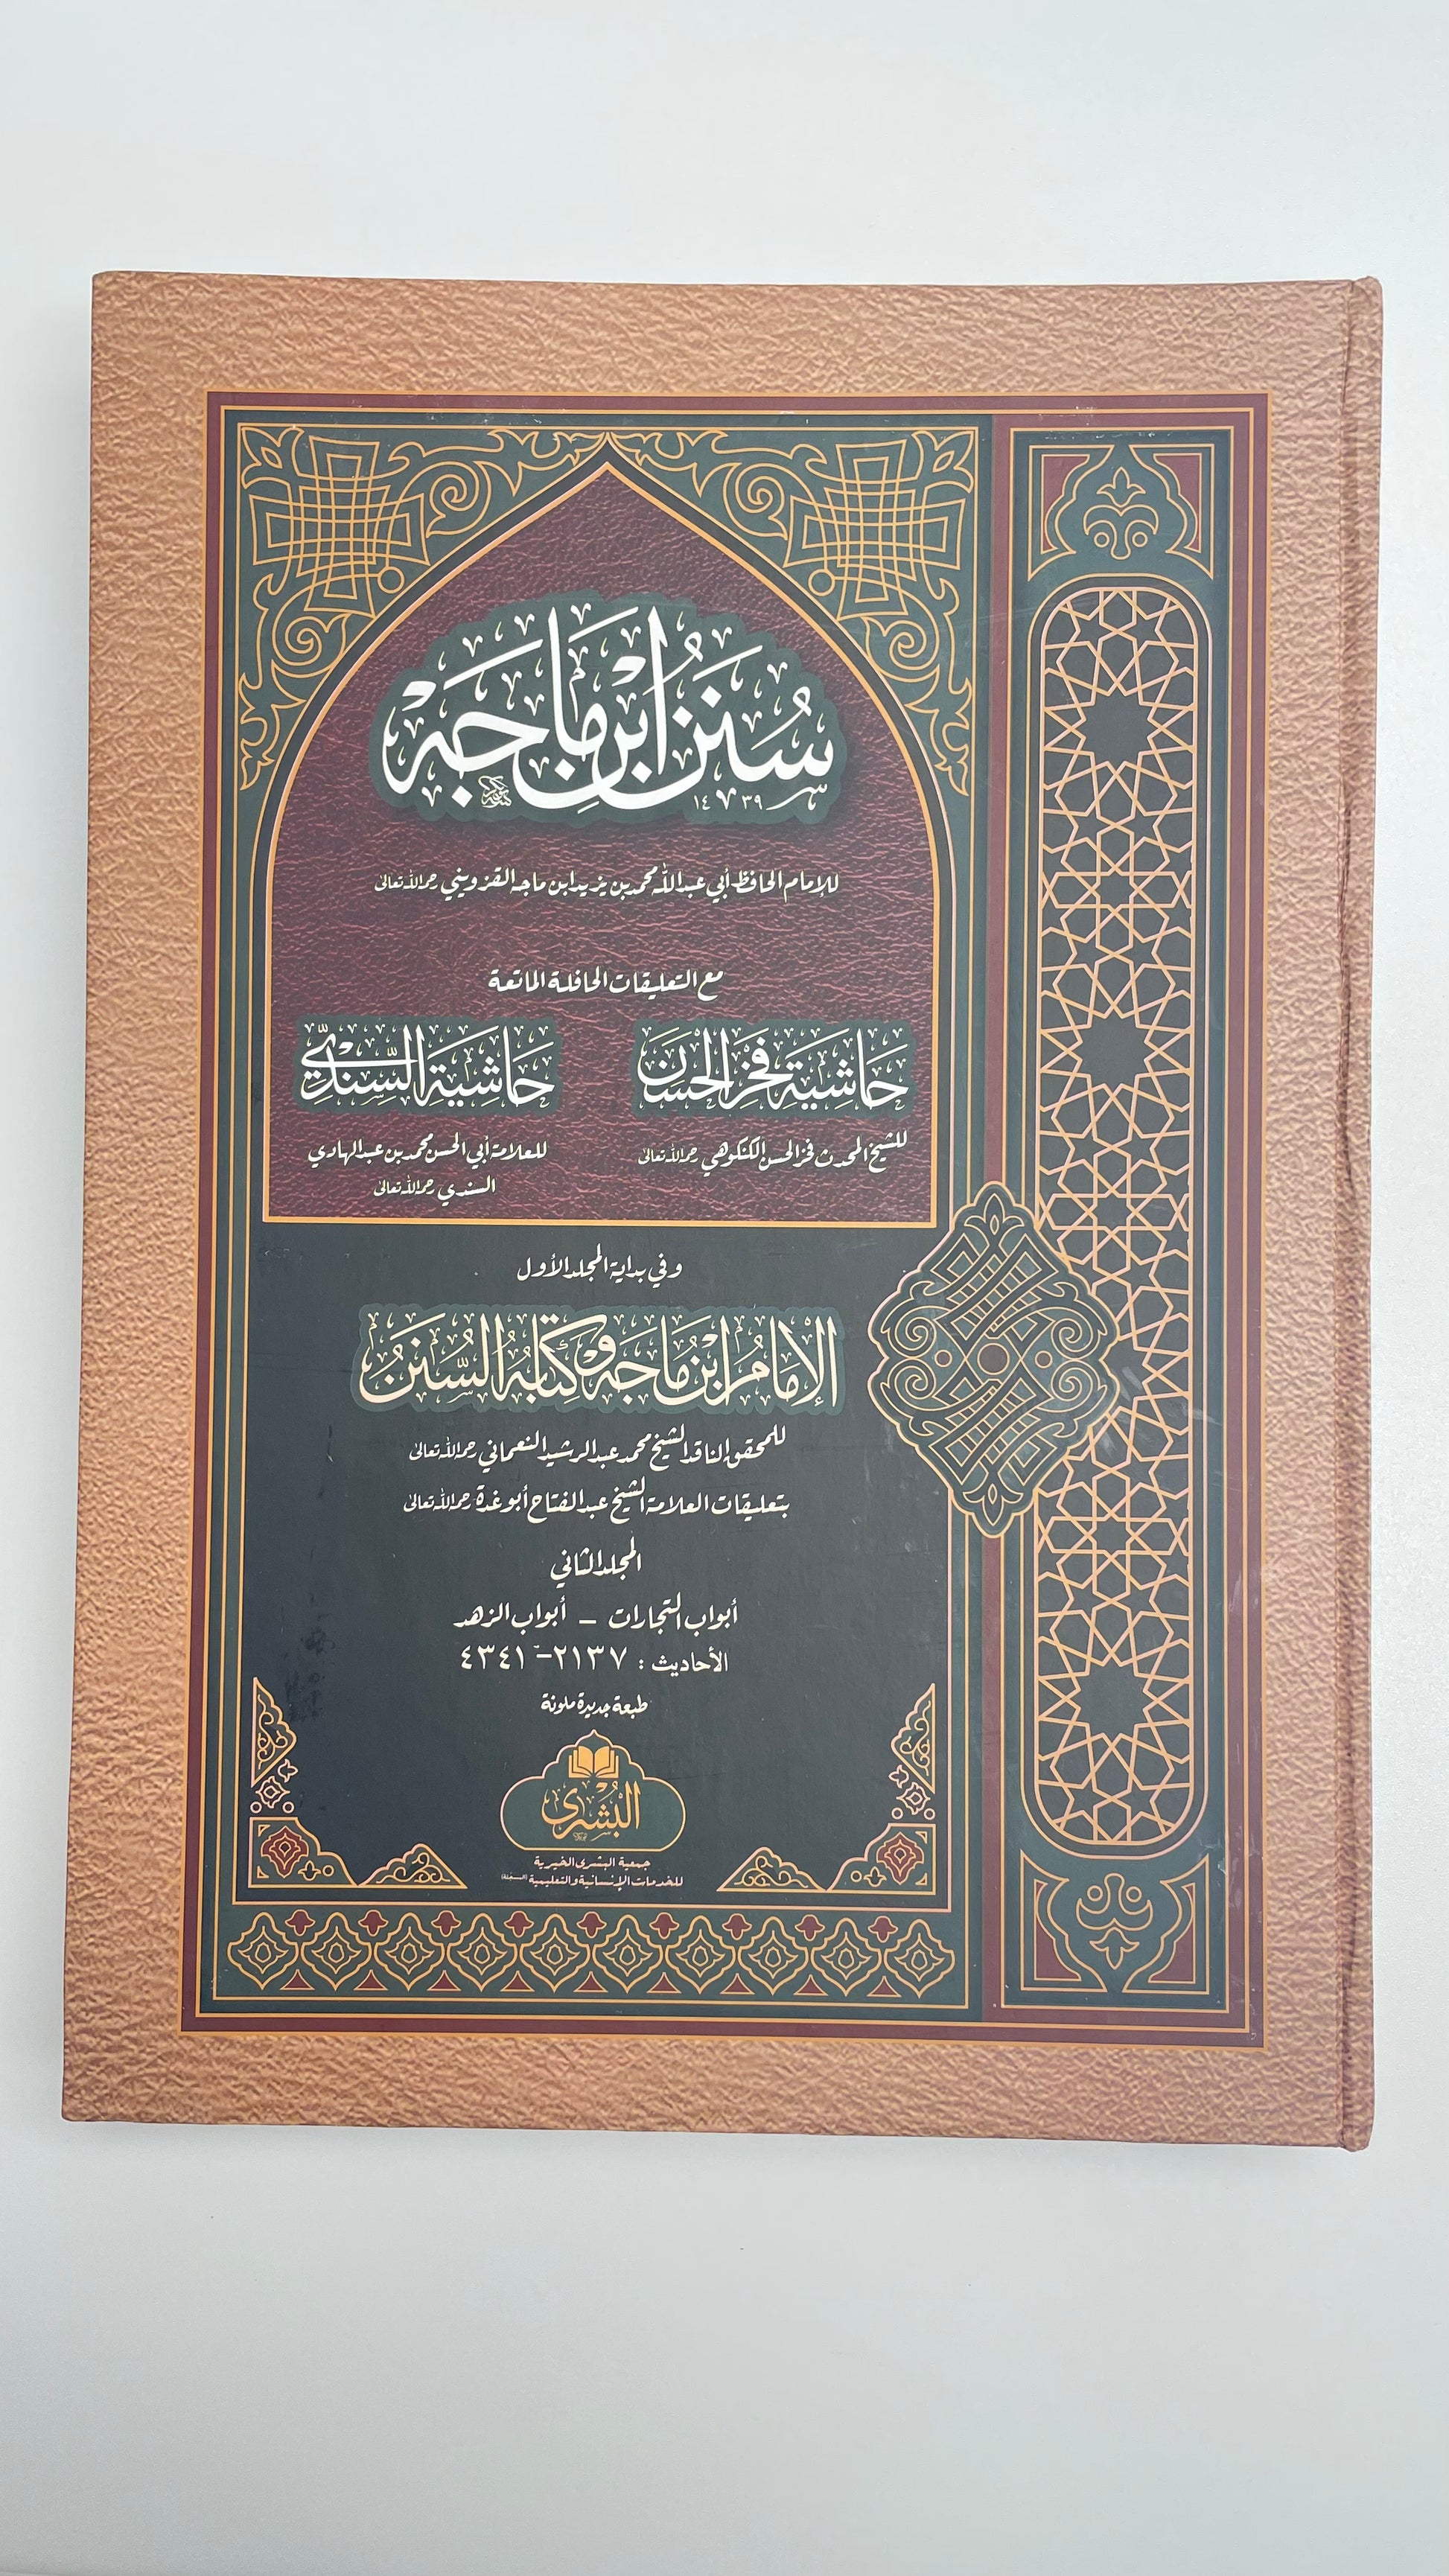 سُنَنُ ابْنِ مَاجَهْ
١٤٣٩
للإمام الحافظ أبي عبد الله محمد بن يزيد ابن ماجه القزويني رحمه الله تعالى
مع التعليقات الحافلة الماتعة
حَاشِيَة فَخْر الحَسَن
حَاشِيَة السِّنْدِيّ
للشيخ المحدث فخر الحسن الكنكوهي رحمه الله تعالى
للعلامة أبي الحسن محمد بن عبد الهادي
السندي رحمه الله تعالى
وفي بداية المجلد الأول
الإمامُ ابْنُ مَاجَه وَكِتَابُهُ السُّنَنُ
للمحقق الناقد الشيخ محمد عبد الرشيد النعماني رحمه الله تعالى
بتعليقات العلامة الشيخ عبد الفتاح أبو غدة رحمه الله تعالى
المجلد الثاني
أبواب التجارات – أبواب الزهد
الأحاديث : ٢١٣٧-٤٣٤١
طبعة جديدة ملونة
البُشْرى
جمعية البشرى الخيرية
للخدمات الإنسانية والتعليمية (المسجلة)